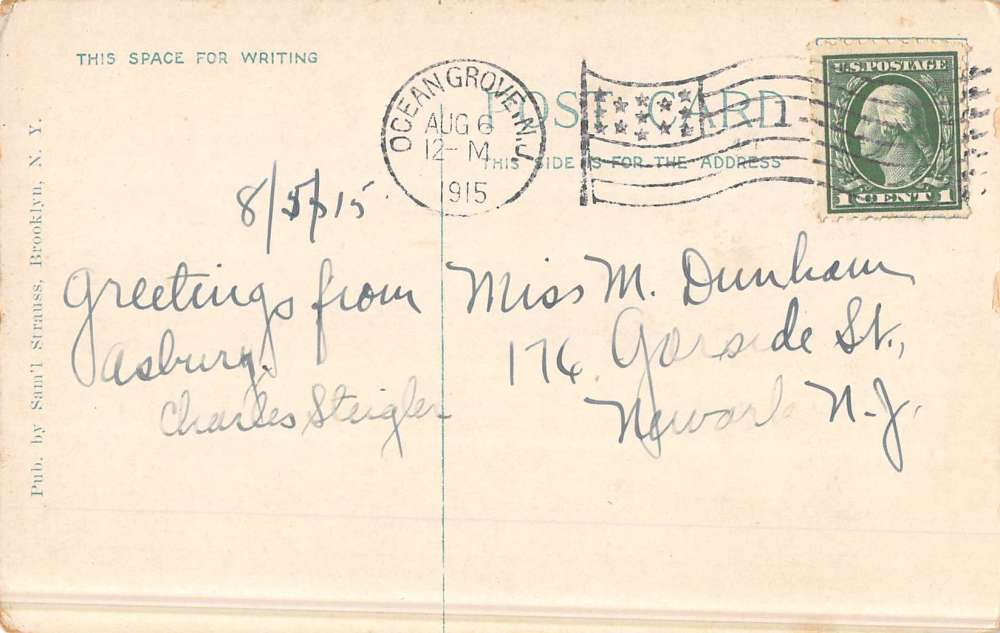 THIS SPACE FOR WRITING
POST CARD
THIS SIDE IS FOR THE ADDRESS
OCEAN GROVE, N.J.
AUG 6
12-M
1915
U.S. POSTAGE
1 CENT 1
Pub. by Sam'l Strauss, Brooklyn, N. Y.
8/5/15
Greetings from
Asbury.
Charles Steigler
Miss M. Dunham
176 Garside St.,
Newark N.J.